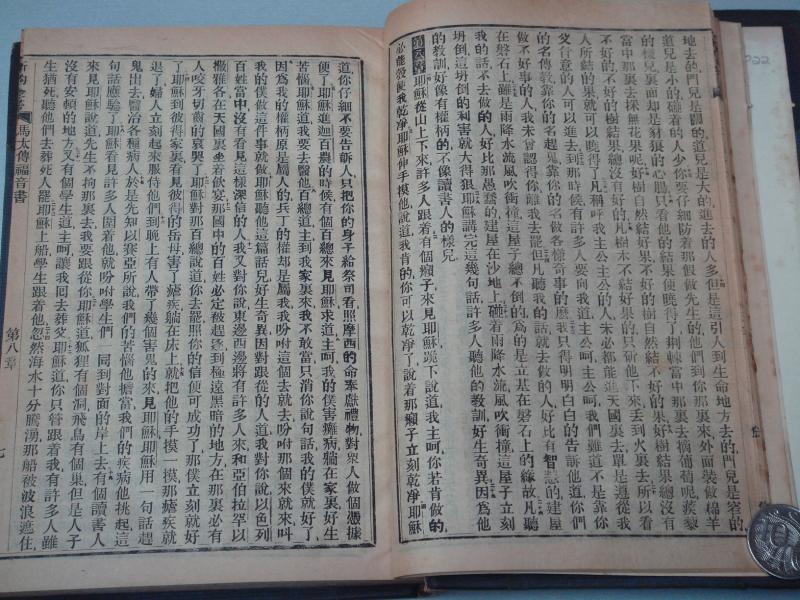 地去的門兒是闊的道兒是大的進去的人多但是這引人到生命地方去的門兒是窄的
道兒是小的碰着的人少你要仔細防着那假做先生的他們到你那裏來外面裝做綿羊
的樣兒裏面却是豺狼的心腸只看他的結果便曉得了荆棘當中那裏去摘葡萄呢蒺藜
當中那裏去採無花果呢好樹自然結好果不好的樹自然結不好的果好樹結果總沒有
不好的不好的樹結果總沒有好的凡樹木不結好果的只斫他下來丢到火裏去所以看
人所結的果就可以曉得了凡稱呼我主公主公的人未必都能進天國裏去單是遵從我
父台意的人可以進去到那時候有許多人要向我道主公呵主公呵我們難道不是靠你
的名傳教靠你的名趕鬼靠你的名做各樣奇事的麼我只得明明白白的告訴他道你們
做不好事的人我未曾認得你離我去罷但凡聽我的話就去做的人好比有智慧的建屋
在磐石上雖是雨降水流風吹衝撞這屋子總不倒的爲的是立基在磐石上的緣故凡聽
我的話不去做的人好比那愚蠢的建屋在沙地上碰着雨降水流風吹衝撞這屋子立刻
坍倒這坍倒的利害就大得狠耶穌講完這幾句話許多人聽他的教訓好生奇異因爲他
的教訓好像有權柄的不像讀書人的樣兒
第八章耶穌從山上下來許多人跟着有個癩子來見耶穌跪下說道我主呵你若肯做的
必能彀使我乾淨耶穌伸手摸他說道我肯的你可以乾淨了說着那癩子立刻乾淨耶穌
道你仔細不要告訴人只把你的身子給祭司看照摩西的命奉獻禮物對衆人做個憑據
便了耶穌進迦百農的時候有個百總來見耶穌求道主呵我的僕害癱病躺在家裏好生
苦惱耶穌道我要去醫他百總道主到我家裏來我不敢當只消你說句話我的僕就好了
因爲我的權柄原是屬人的兵丁的權却是屬我我吩咐這個去就去吩咐那個來就來叫
我的僕做這件事就做耶穌聽他這篇話兒好生奇異因對跟從的人道我對你說以色列
百姓當中沒有看見這樣深信的人我又對你說東邊西邊將有許多人來和亞伯拉罕以
撒雅各在天國裏坐着飲宴那國中的百姓必定被趕逐到極遠黑暗的地方在那裏必有
人咬牙切齒的哀哭了耶穌對那百總說道你去罷照你的信便可成功了那僕立刻好
了耶穌到彼得家裏看見彼得的岳母害了瘧疾躺在床上就把他的手摸一摸那瘧疾就
退了婦人立刻起來服侍他們到晚上有人帶了幾個害鬼的來見耶穌耶穌用一句話趕
鬼出去醫治各種病人於是先知以賽亞所說我們的苦惱他擔當我們的疾病他挑起這
句話應驗了耶穌看見許多人圍着他就吩咐學生們一同到對面的岸上去有個讀書人
來見耶穌說道先生不拘那裏去我要跟從你耶穌道狐狸有個洞飛鳥有個巢但是人子
沒有安頓的地方又有個學生道主呵讓我回去葬父耶穌道你只管跟着我有許多人雖
生猶死聽他們去葬死人罷耶穌上船學生跟着他忽然海水十分騰湧那船被波浪遮住
馬太傳福音書
第八章
七